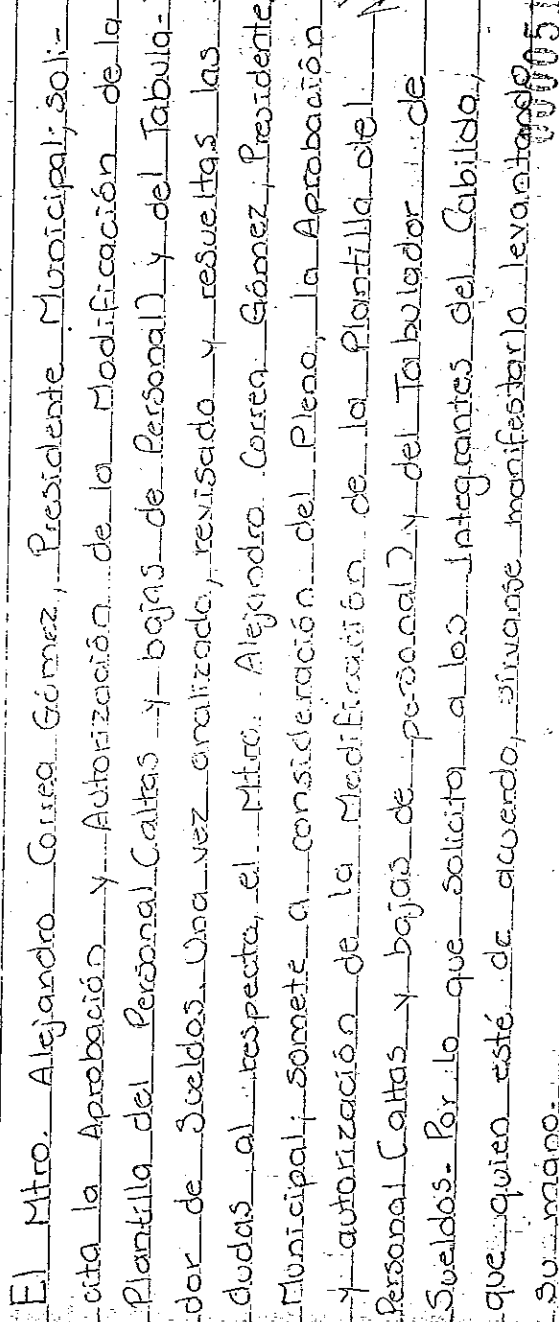 El Mtro. Alejandro Correa Gómez, Presidente Municipal; soli-
cita la Aprobación y Autorización de la Modificación de la
Plantilla del Personal (altas y bajas de Personal) y del Tabula-
dor de Sueldos. Una vez analizado, revisado y resueltas las
dudas al respecto, el Mtro. Alejandro Correa Gómez, Presidente
Municipal; somete a consideración del Pleno, la Aprobación
y autorización de la Modificación de la Plantilla del
Personal (altas y bajas de personal) y del Tabulador de
Sueldos. Por lo que solicita a los Integrantes del Cabildo,
que quien esté de acuerdo, sírvanse manifestarlo levantando
su mano.